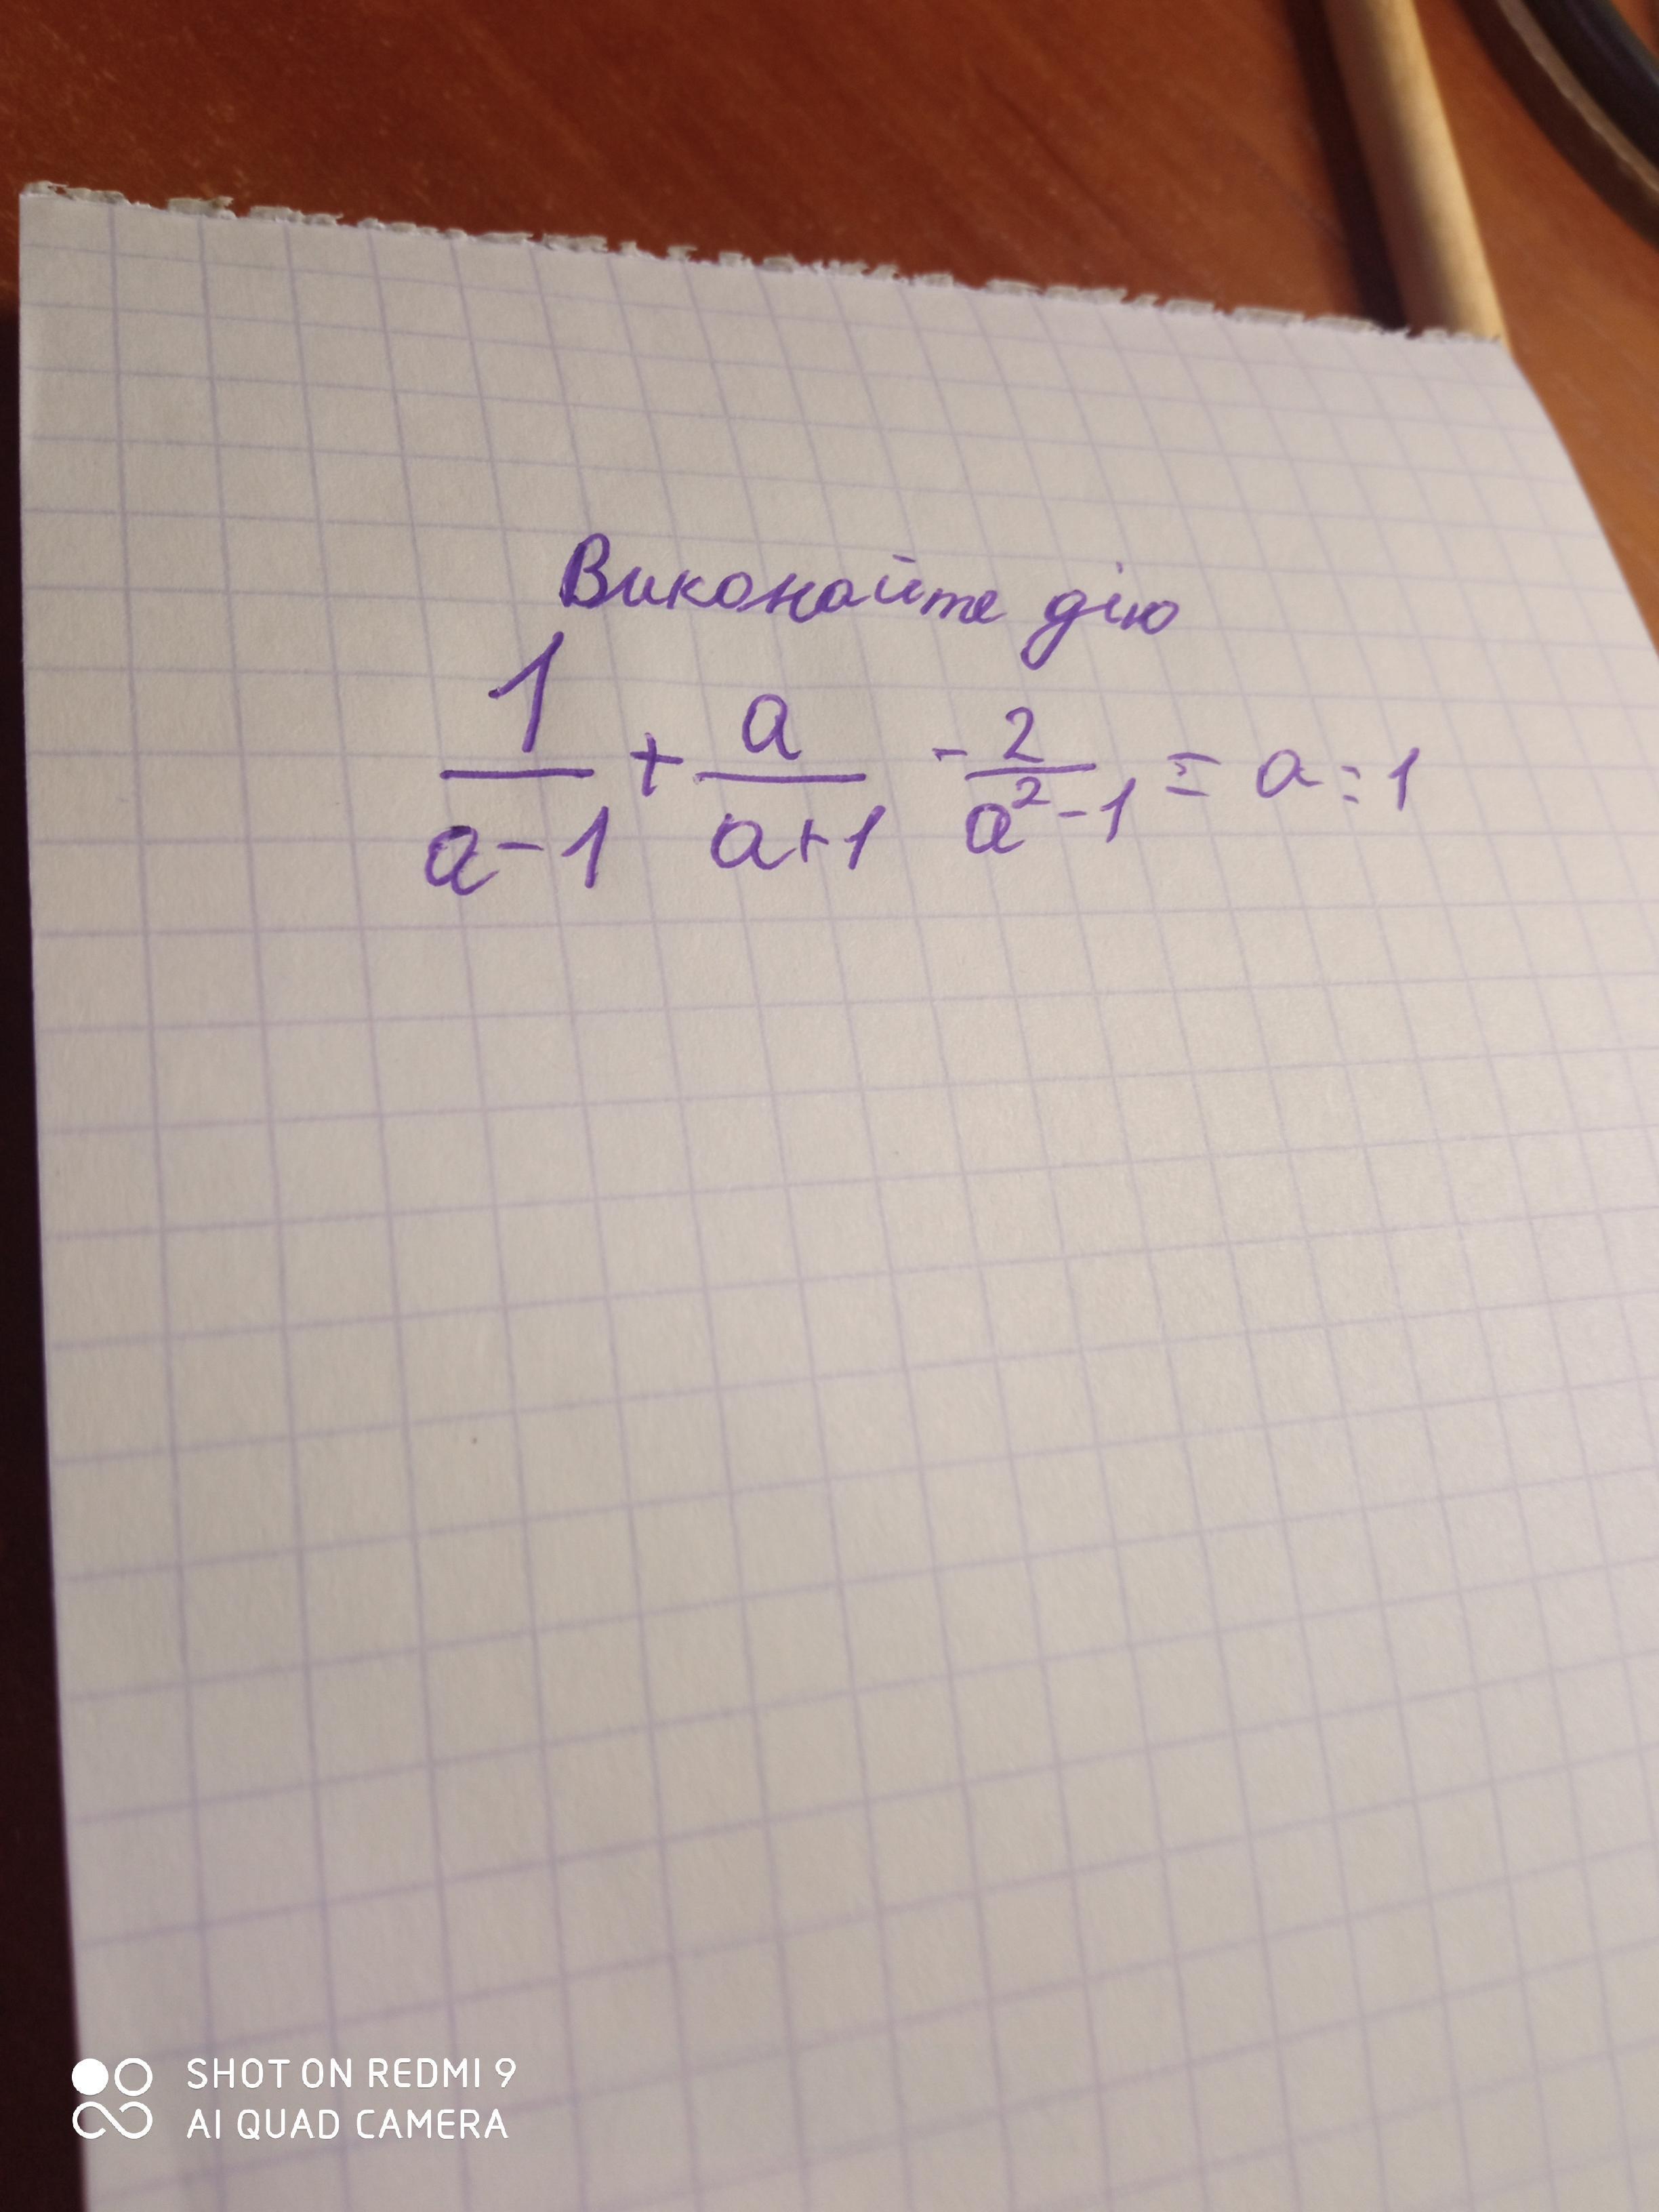 Виконайте дію
1/(a-1) + a/(a+1) - 2/(a²-1) = a:1
SHOT ON REDMI 9
AI QUAD CAMERA